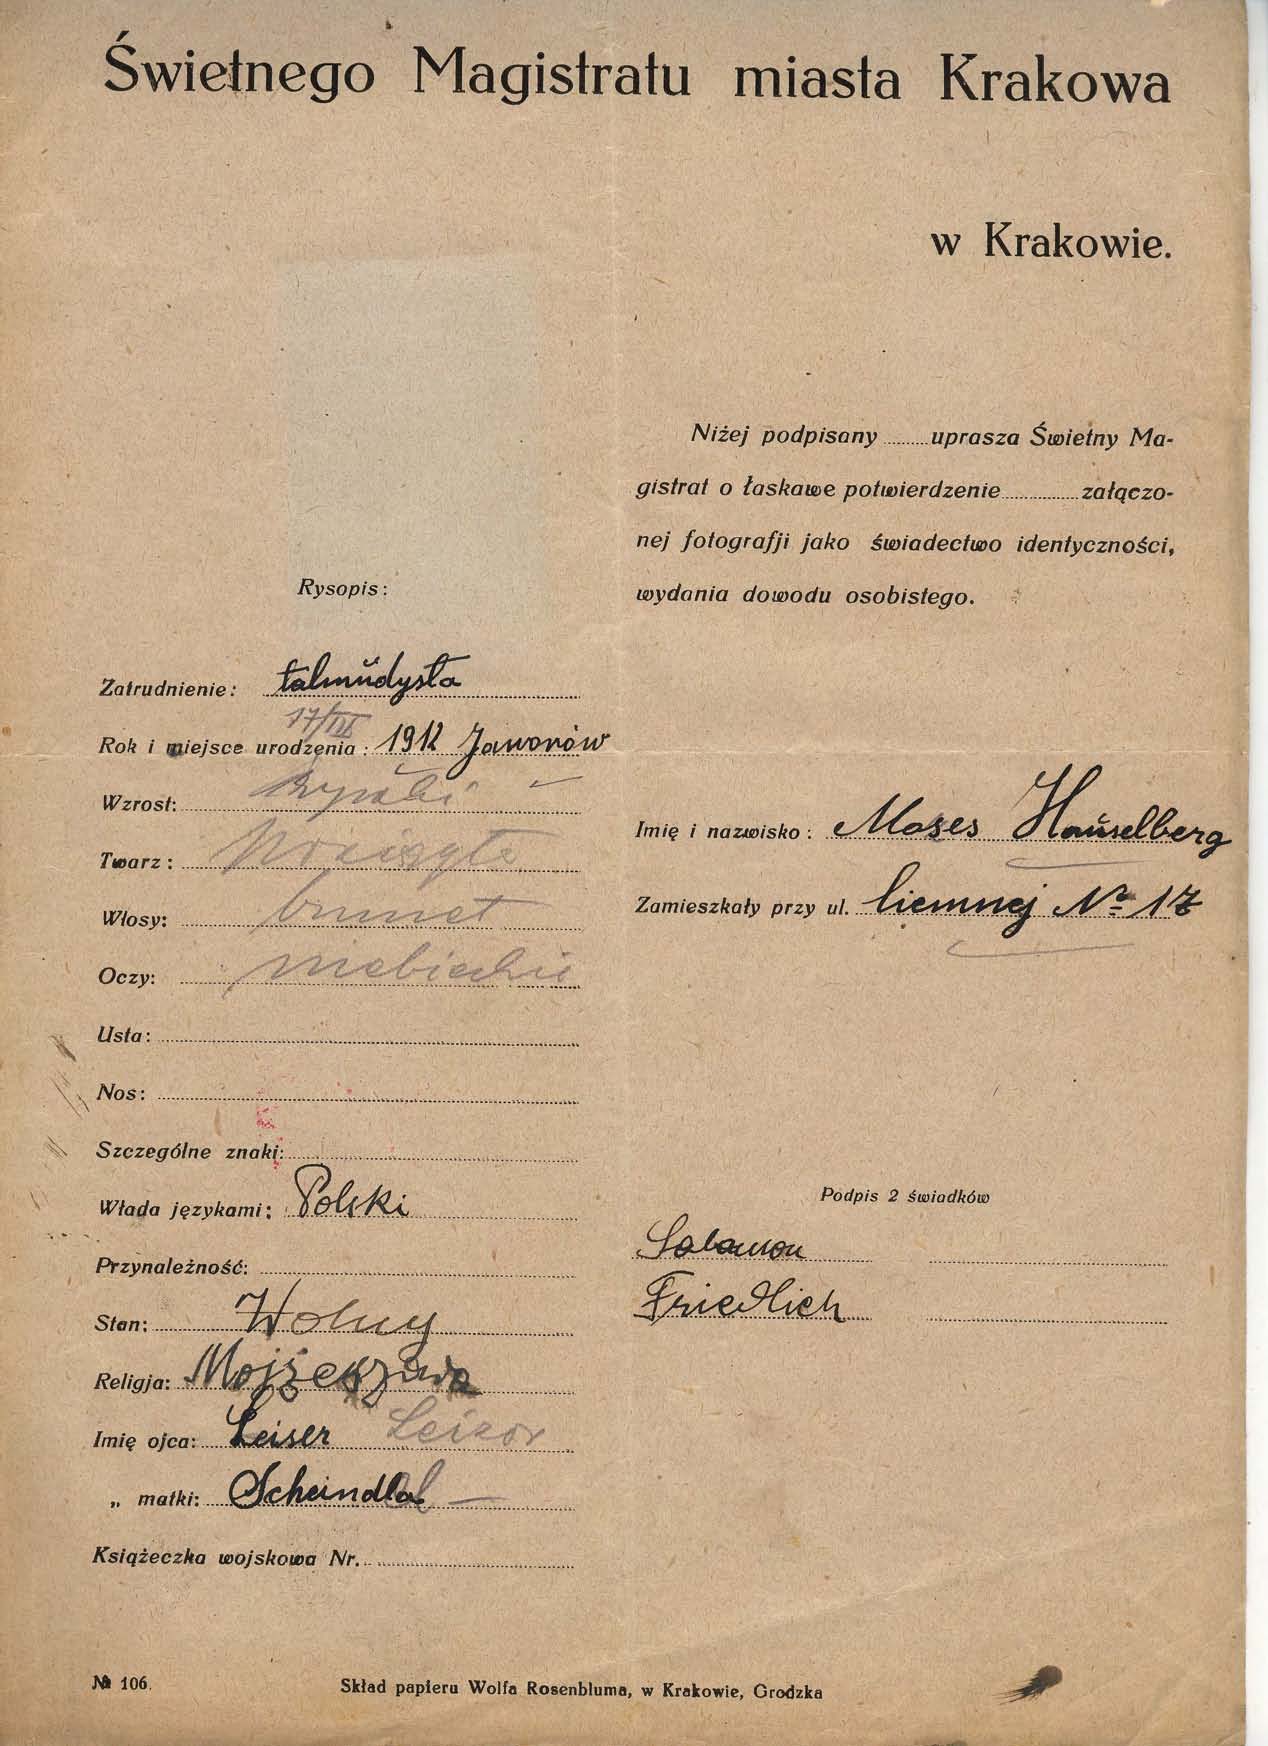 Świetnego Magistratu miasta Krakowa
w Krakowie.
Niżej podpisany ........ uprasza Świetny Ma-
gistrat o łaskawe potwierdzenie ............ załączo-
nej fotografji jako świadectwo identyczności,
wydania dowodu osobistego.
Rysopis:
Zatrudnienie: talmudysta
17/III
Rok i miejsce urodzenia: 1912 Jaworów
Wzrost:
Twarz:
Włosy: brunet
Oczy: niebieskie
Usta:
Nos:
Szczególne znaki:
Włada językami: Polski
Przynależność:
Stan: Wolny
Religja: Mojżeszowa
Imię ojca: Leiser Leizor
„ matki: Scheindla
Książeczka wojskowa Nr.
Imię i nazwisko: Moses Hauselberg
Zamieszkały przy ul. Ciemnej № 17
Podpis 2 świadków
Salamon
Friedlich
№ 106.
Skład papieru Wolfa Rosenbluma, w Krakowie, Grodzka